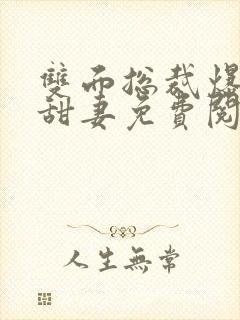 雙面總裁爆
甜妻免費閱
人生無常